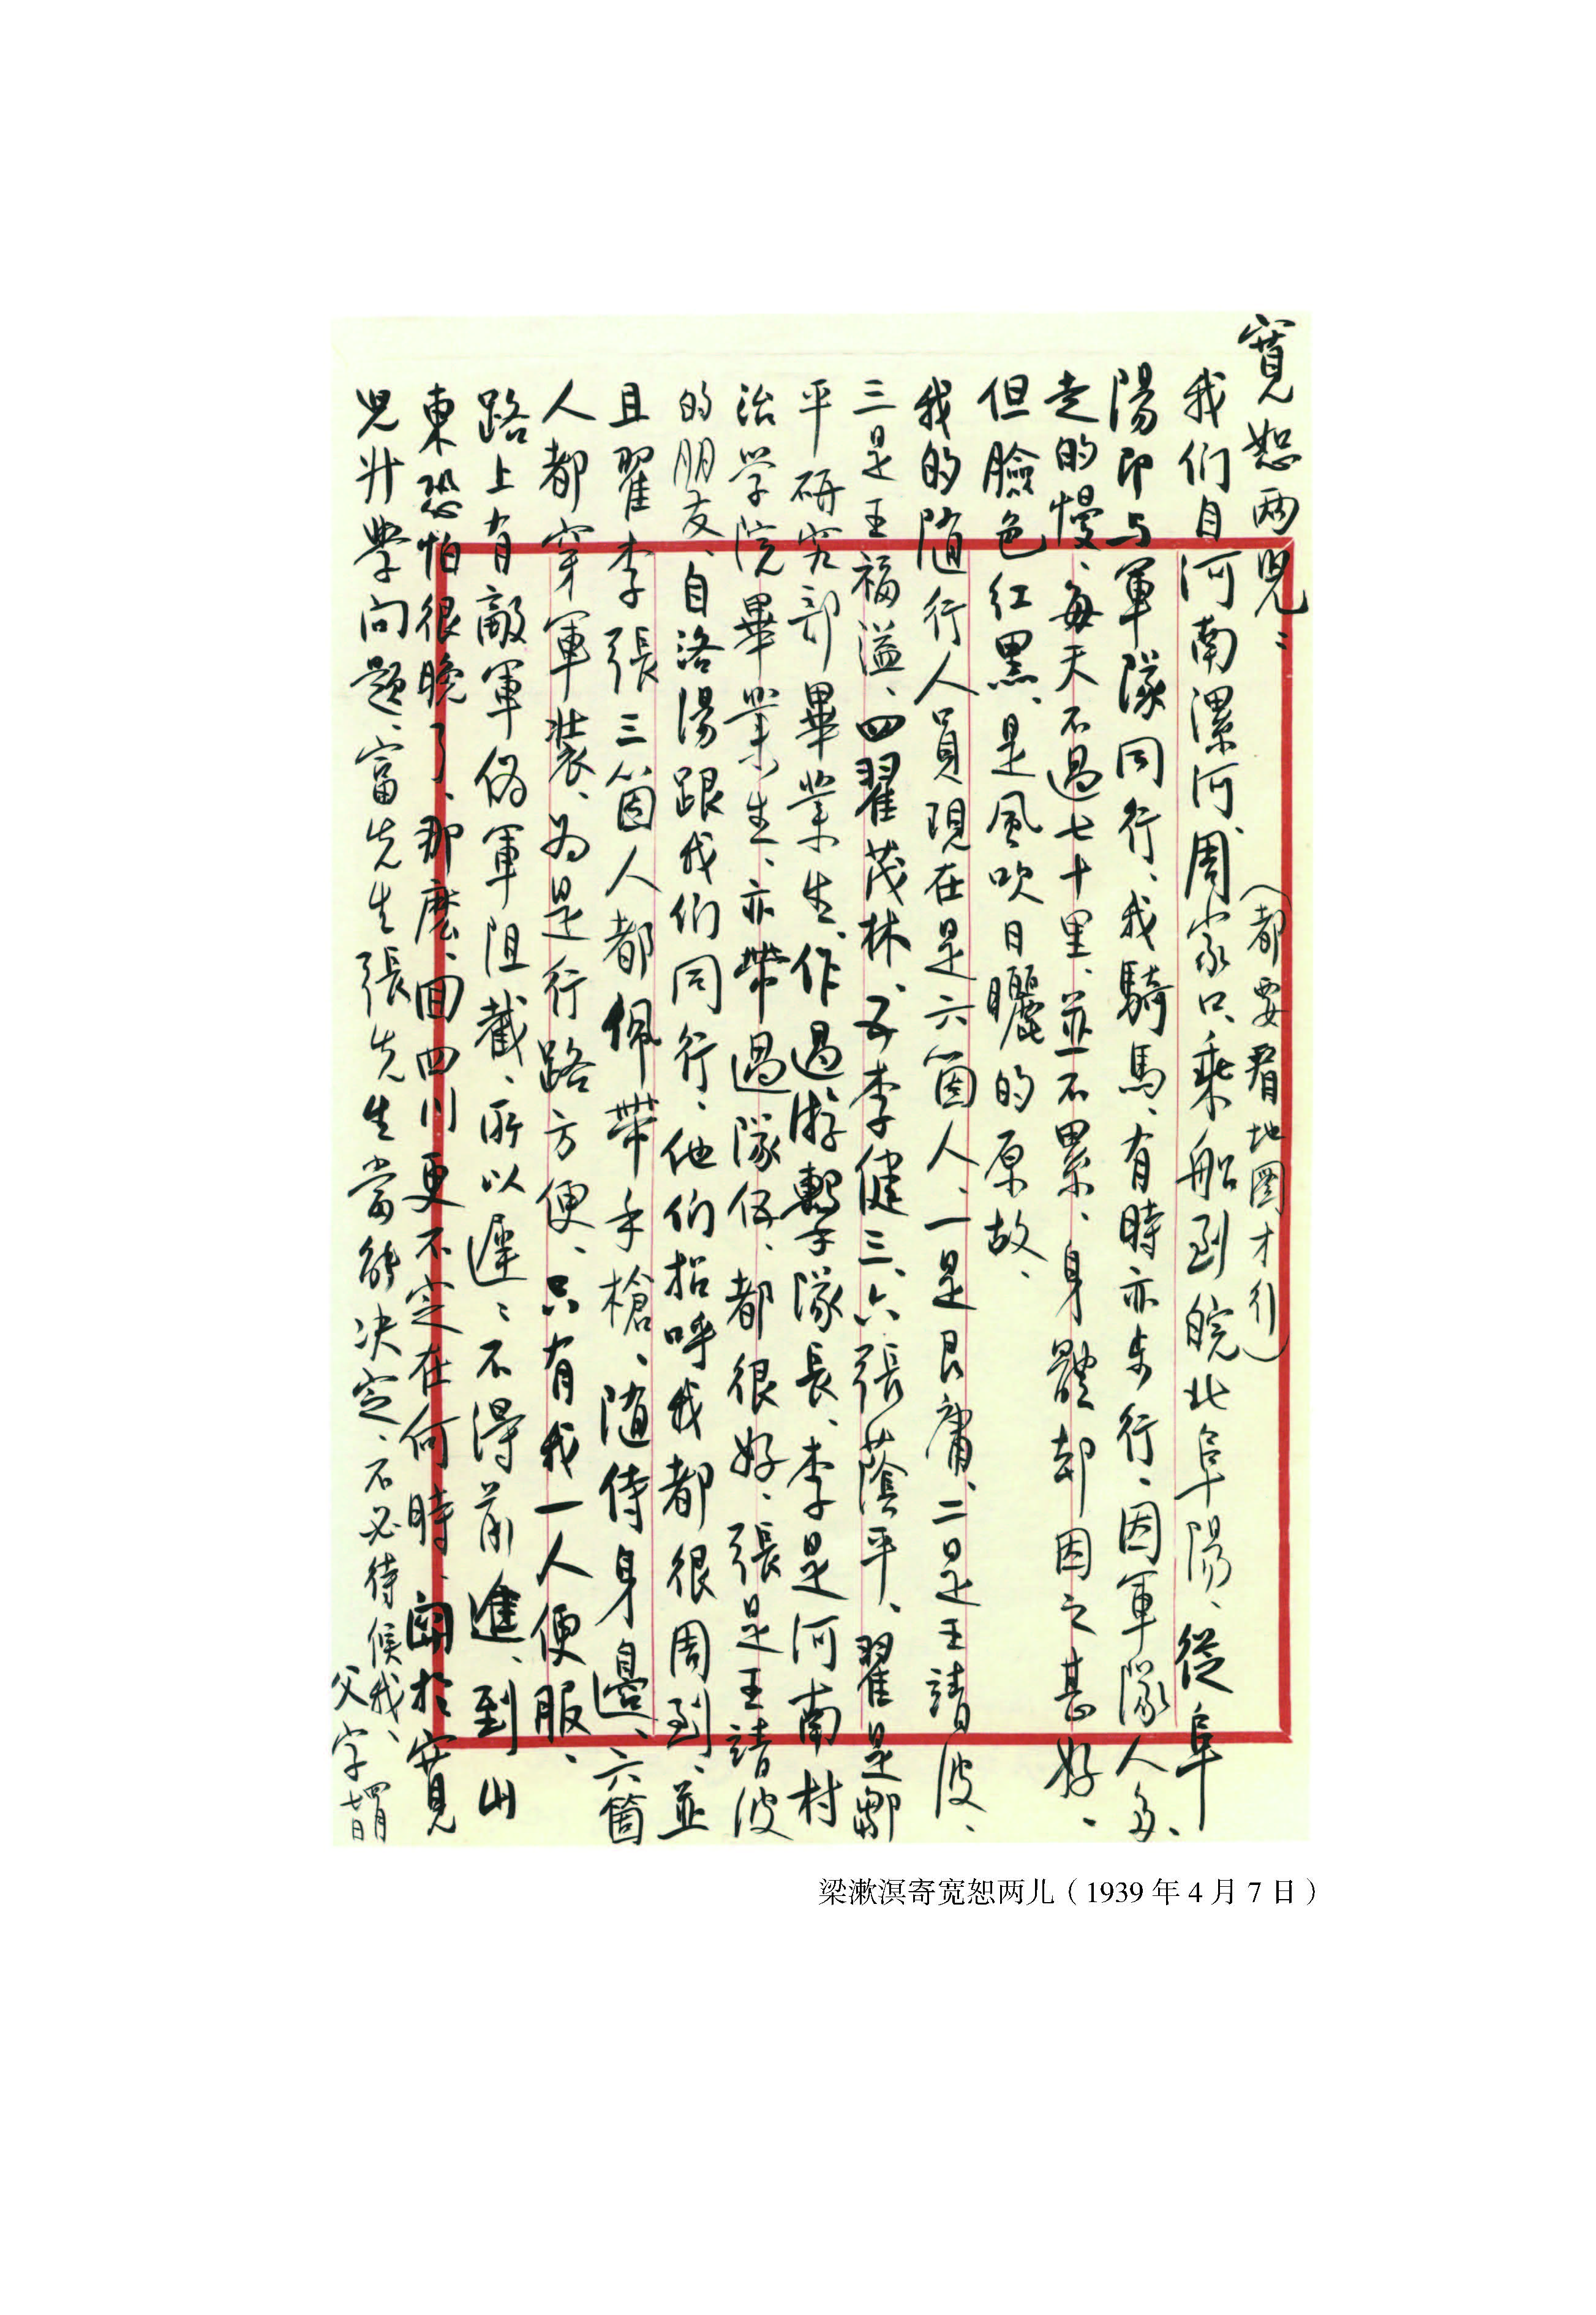 寬恕两兒：
（都要看地圖才行）
我们自河南漯河、周家口、乘船到皖北阜陽、從阜
陽即与軍隊同行、我騎馬、有時亦步行、因軍隊人多、
走的慢、每天不過七十里、並不累、身體却因之甚好、
但臉色红黑、是風吹日曬的原故、
我的随行人員現在是六箇人、一是艮庸、二是王靖波、
三是王福溢、四翟茂林、五李健三、六張蔭平、翟是鄒
平研究部畢業生、作過游擊隊長、李是河南村
治学院畢業生、亦带過隊伍、都很好、張是王靖波
的朋友、自洛陽跟我们同行、他们招呼我都很周到、並
且翟李張三箇人都佩带手槍、随侍身邊、六箇
人都穿軍装、为是行路方便、只有我一人便服、
路上有敵軍伪軍阻截、所以遲：不得前進、到山
東恐怕很晚了、那麽、回四川更不定在何時、関於寬
兒升學问题、富先生張先生當能决定、不必待候我、
父字四月七日
梁漱溟寄宽恕两儿（1939 年 4 月 7 日）